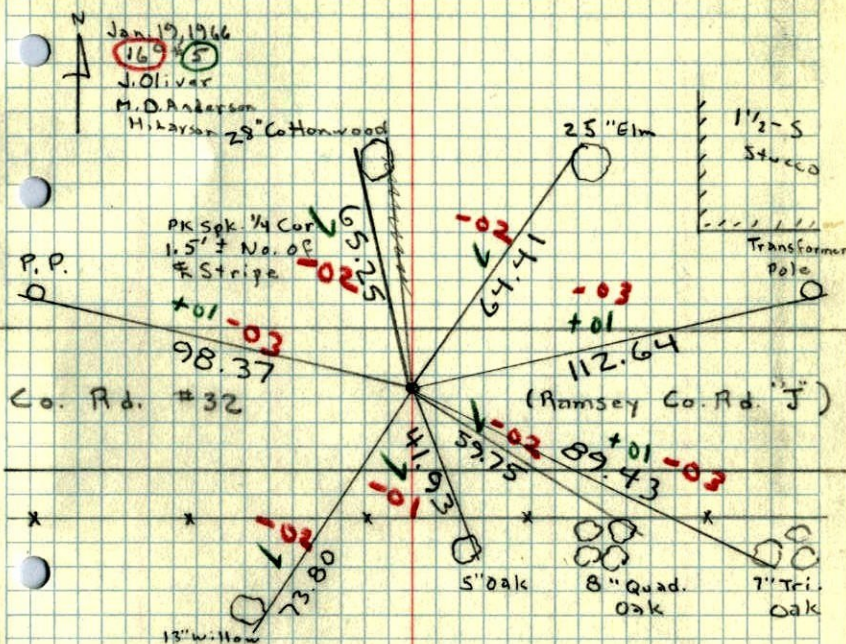 N
Jan. 19, 1966
16° # 5
J. Oliver
M. D. Anderson
H. Larson
28" Cottonwood
25" Elm
1½-S
Stucco
PK Spk. ¼ Cor
1.5' ± No. of
℄ Stripe
65.25
-02
-02
64.41
Transformer
Pole
P. P.
+01 -03
98.37
-03
+01
112.64
Co. Rd. #32
(Ramsey Co. Rd. "J")
41.93
-01
59.75
-02
89.43
+01 -03
-02
73.80
13" Willow
5" Oak
8" Quad.
Oak
7" Tri.
Oak